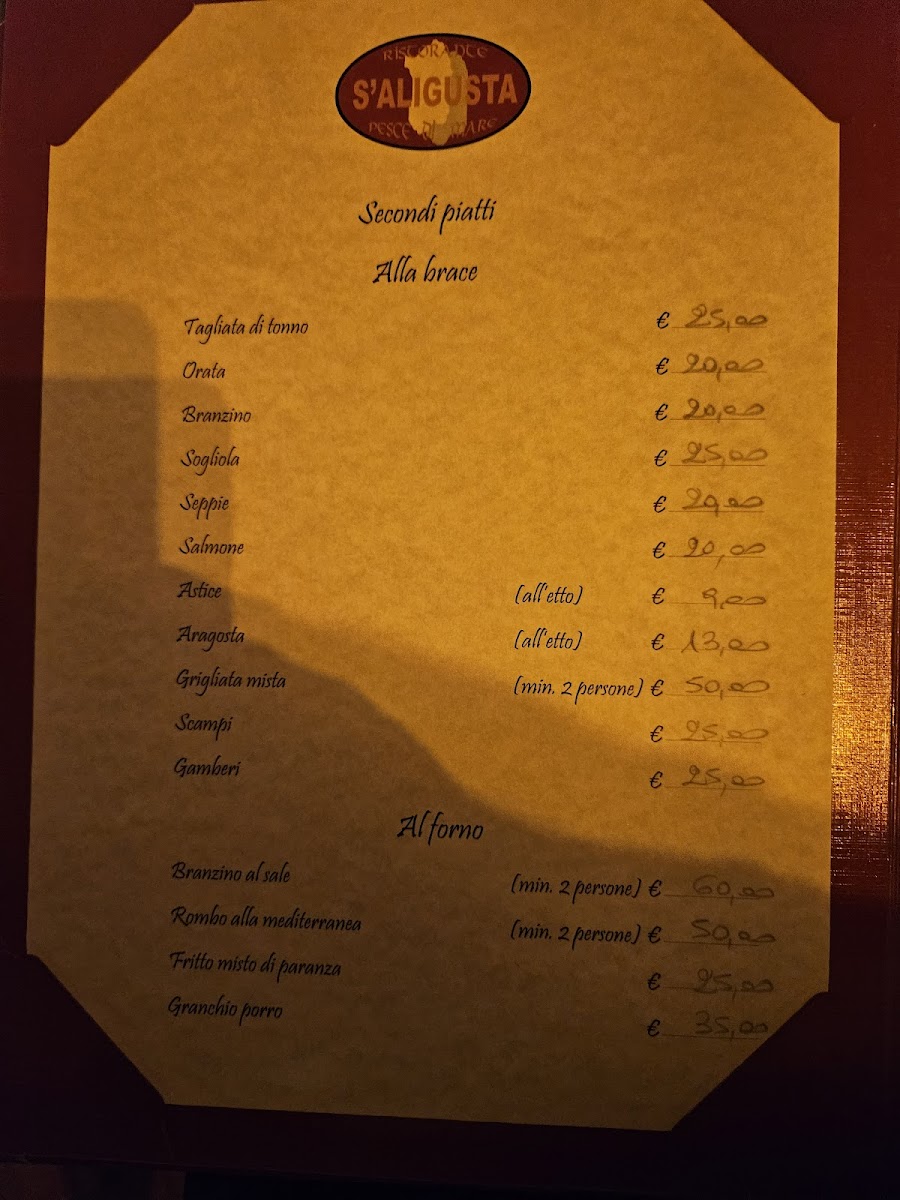 RISTORANTE
S'ALIGUSTA
PESCE DI MARE
Secondi piatti
Alla brace
Tagliata di tonno € 25,00
Orata € 20,00
Branzino € 20,00
Sogliola € 25,00
Seppie € 20,00
Salmone € 20,00
Astice (all'etto) € 9,00
Aragosta (all'etto) € 13,00
Grigliata mista (min. 2 persone) € 50,00
Scampi € 25,00
Gamberi € 25,00
Al forno
Branzino al sale (min. 2 persone) € 60,00
Rombo alla mediterranea (min. 2 persone) € 50,00
Fritto misto di paranza € 25,00
Granchio porro € 35,00